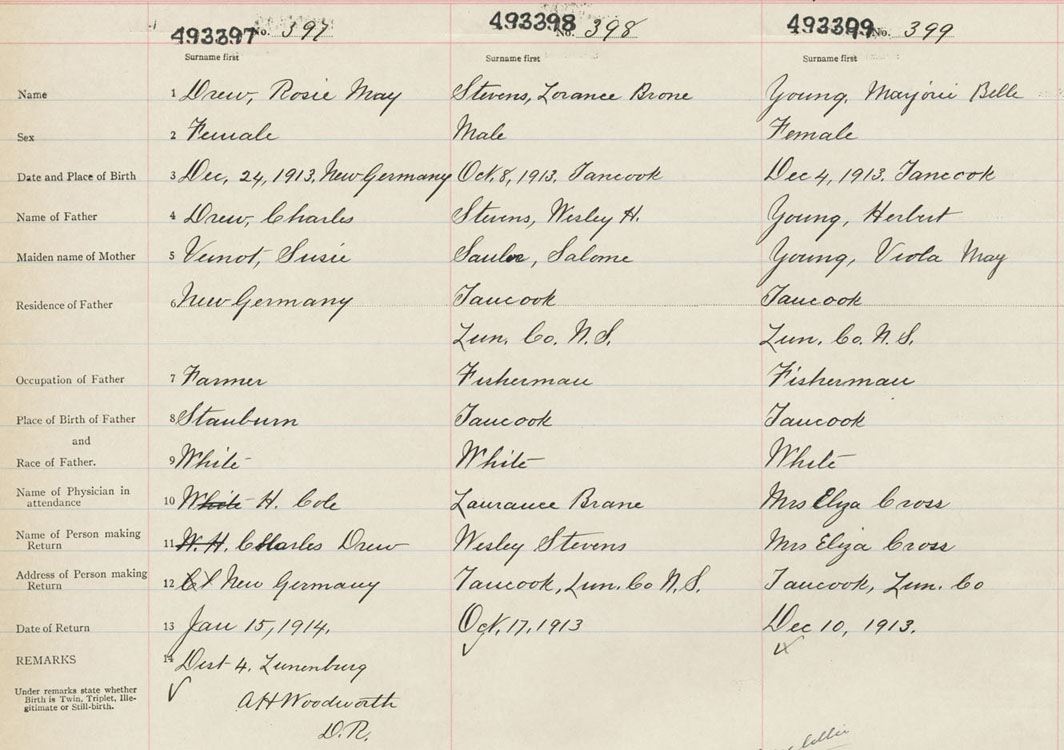 493397 No. 397 493398 No. 398 493399 No. 399
Surname first Surname first Surname first
Name 1 Drew, Rosie May Stevens, Lorance Brone Young, Marjorie Belle
Sex 2 Female Male Female
Date and Place of Birth 3 Dec, 24, 1913, New Germany Oct. 8, 1913. Tancook Dec 4, 1913. Tancook
Name of Father 4 Drew, Charles Stevens, Wesley H. Young, Herbert
Maiden name of Mother 5 Veinot, Susie Salome Young, Viola May
Residence of Father 6 New Germany Tancook Tancook
Lun. Co. N.S. Lun. Co. N.S.
Occupation of Father 7 Farmer Fisherman Fisherman
Place of Birth of Father 8 Stanburn Tancook Tancook
and
Race of Father. 9 White White White
Name of Physician in
attendance 10 White H. Cole Laurance Brane Mrs Eliza Cross
Name of Person making
Return 11 W.H. Charles Drew Wesley Stevens Mrs Eliza Cross
Address of Person making
Return 12 New Germany Tancook, Lun. Co N.S. Tancook, Lun. Co
Date of Return 13 Jan 15, 1914. Oct. 17, 1913 Dec 10, 1913.
REMARKS 14 Dist 4. Lunenburg
Under remarks state whether
Birth is Twin, Triplet, Ille-
gitimate or Still-birth.
A H Woodworth
D.R.